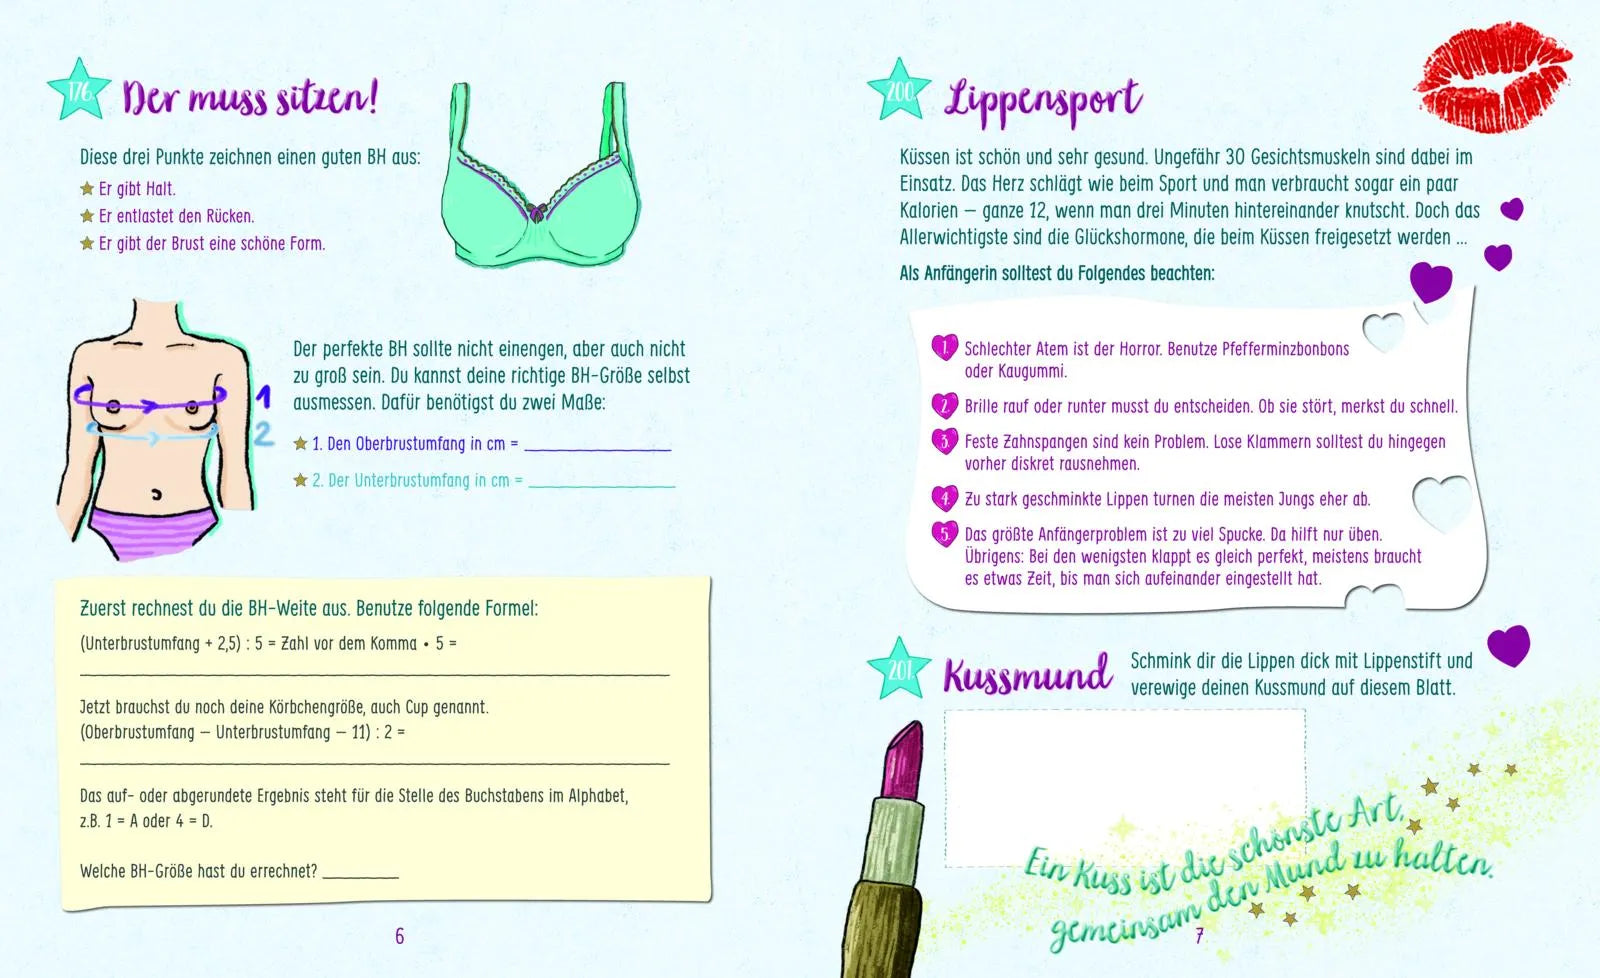 176.
Der muss sitzen!
Diese drei Punkte zeichnen einen guten BH aus:
Er gibt Halt.
Er entlastet den Rücken.
Er gibt der Brust eine schöne Form.
1
2
Der perfekte BH sollte nicht einengen, aber auch nicht
zu groß sein. Du kannst deine richtige BH-Größe selbst
ausmessen. Dafür benötigst du zwei Maße:
1. Den Oberbrustumfang in cm = 
2. Der Unterbrustumfang in cm = 
Zuerst rechnest du die BH-Weite aus. Benutze folgende Formel:
(Unterbrustumfang + 2,5) : 5 = Zahl vor dem Komma • 5 =
Jetzt brauchst du noch deine Körbchengröße, auch Cup genannt.
(Oberbrustumfang – Unterbrustumfang – 11) : 2 =
Das auf- oder abgerundete Ergebnis steht für die Stelle des Buchstabens im Alphabet,
z.B. 1 = A oder 4 = D.
Welche BH-Größe hast du errechnet?
6
200.
Lippensport
Küssen ist schön und sehr gesund. Ungefähr 30 Gesichtsmuskeln sind dabei im
Einsatz. Das Herz schlägt wie beim Sport und man verbraucht sogar ein paar
Kalorien – ganze 12, wenn man drei Minuten hintereinander knutscht. Doch das
Allerwichtigste sind die Glückshormone, die beim Küssen freigesetzt werden ...
Als Anfängerin solltest du Folgendes beachten:
1. Schlechter Atem ist der Horror. Benutze Pfefferminzbonbons
oder Kaugummi.
2. Brille rauf oder runter musst du entscheiden. Ob sie stört, merkst du schnell.
3. Feste Zahnspangen sind kein Problem. Lose Klammern solltest du hingegen
vorher diskret rausnehmen.
4. Zu stark geschminkte Lippen turnen die meisten Jungs eher ab.
5. Das größte Anfängerproblem ist zu viel Spucke. Da hilft nur üben.
Übrigens: Bei den wenigsten klappt es gleich perfekt, meistens braucht
es etwas Zeit, bis man sich aufeinander eingestellt hat.
201.
Kussmund
Schmink dir die Lippen dick mit Lippenstift und
verewige deinen Kussmund auf diesem Blatt.
Ein Kuss ist die schönste Art,
gemeinsam den Mund zu halten.
7